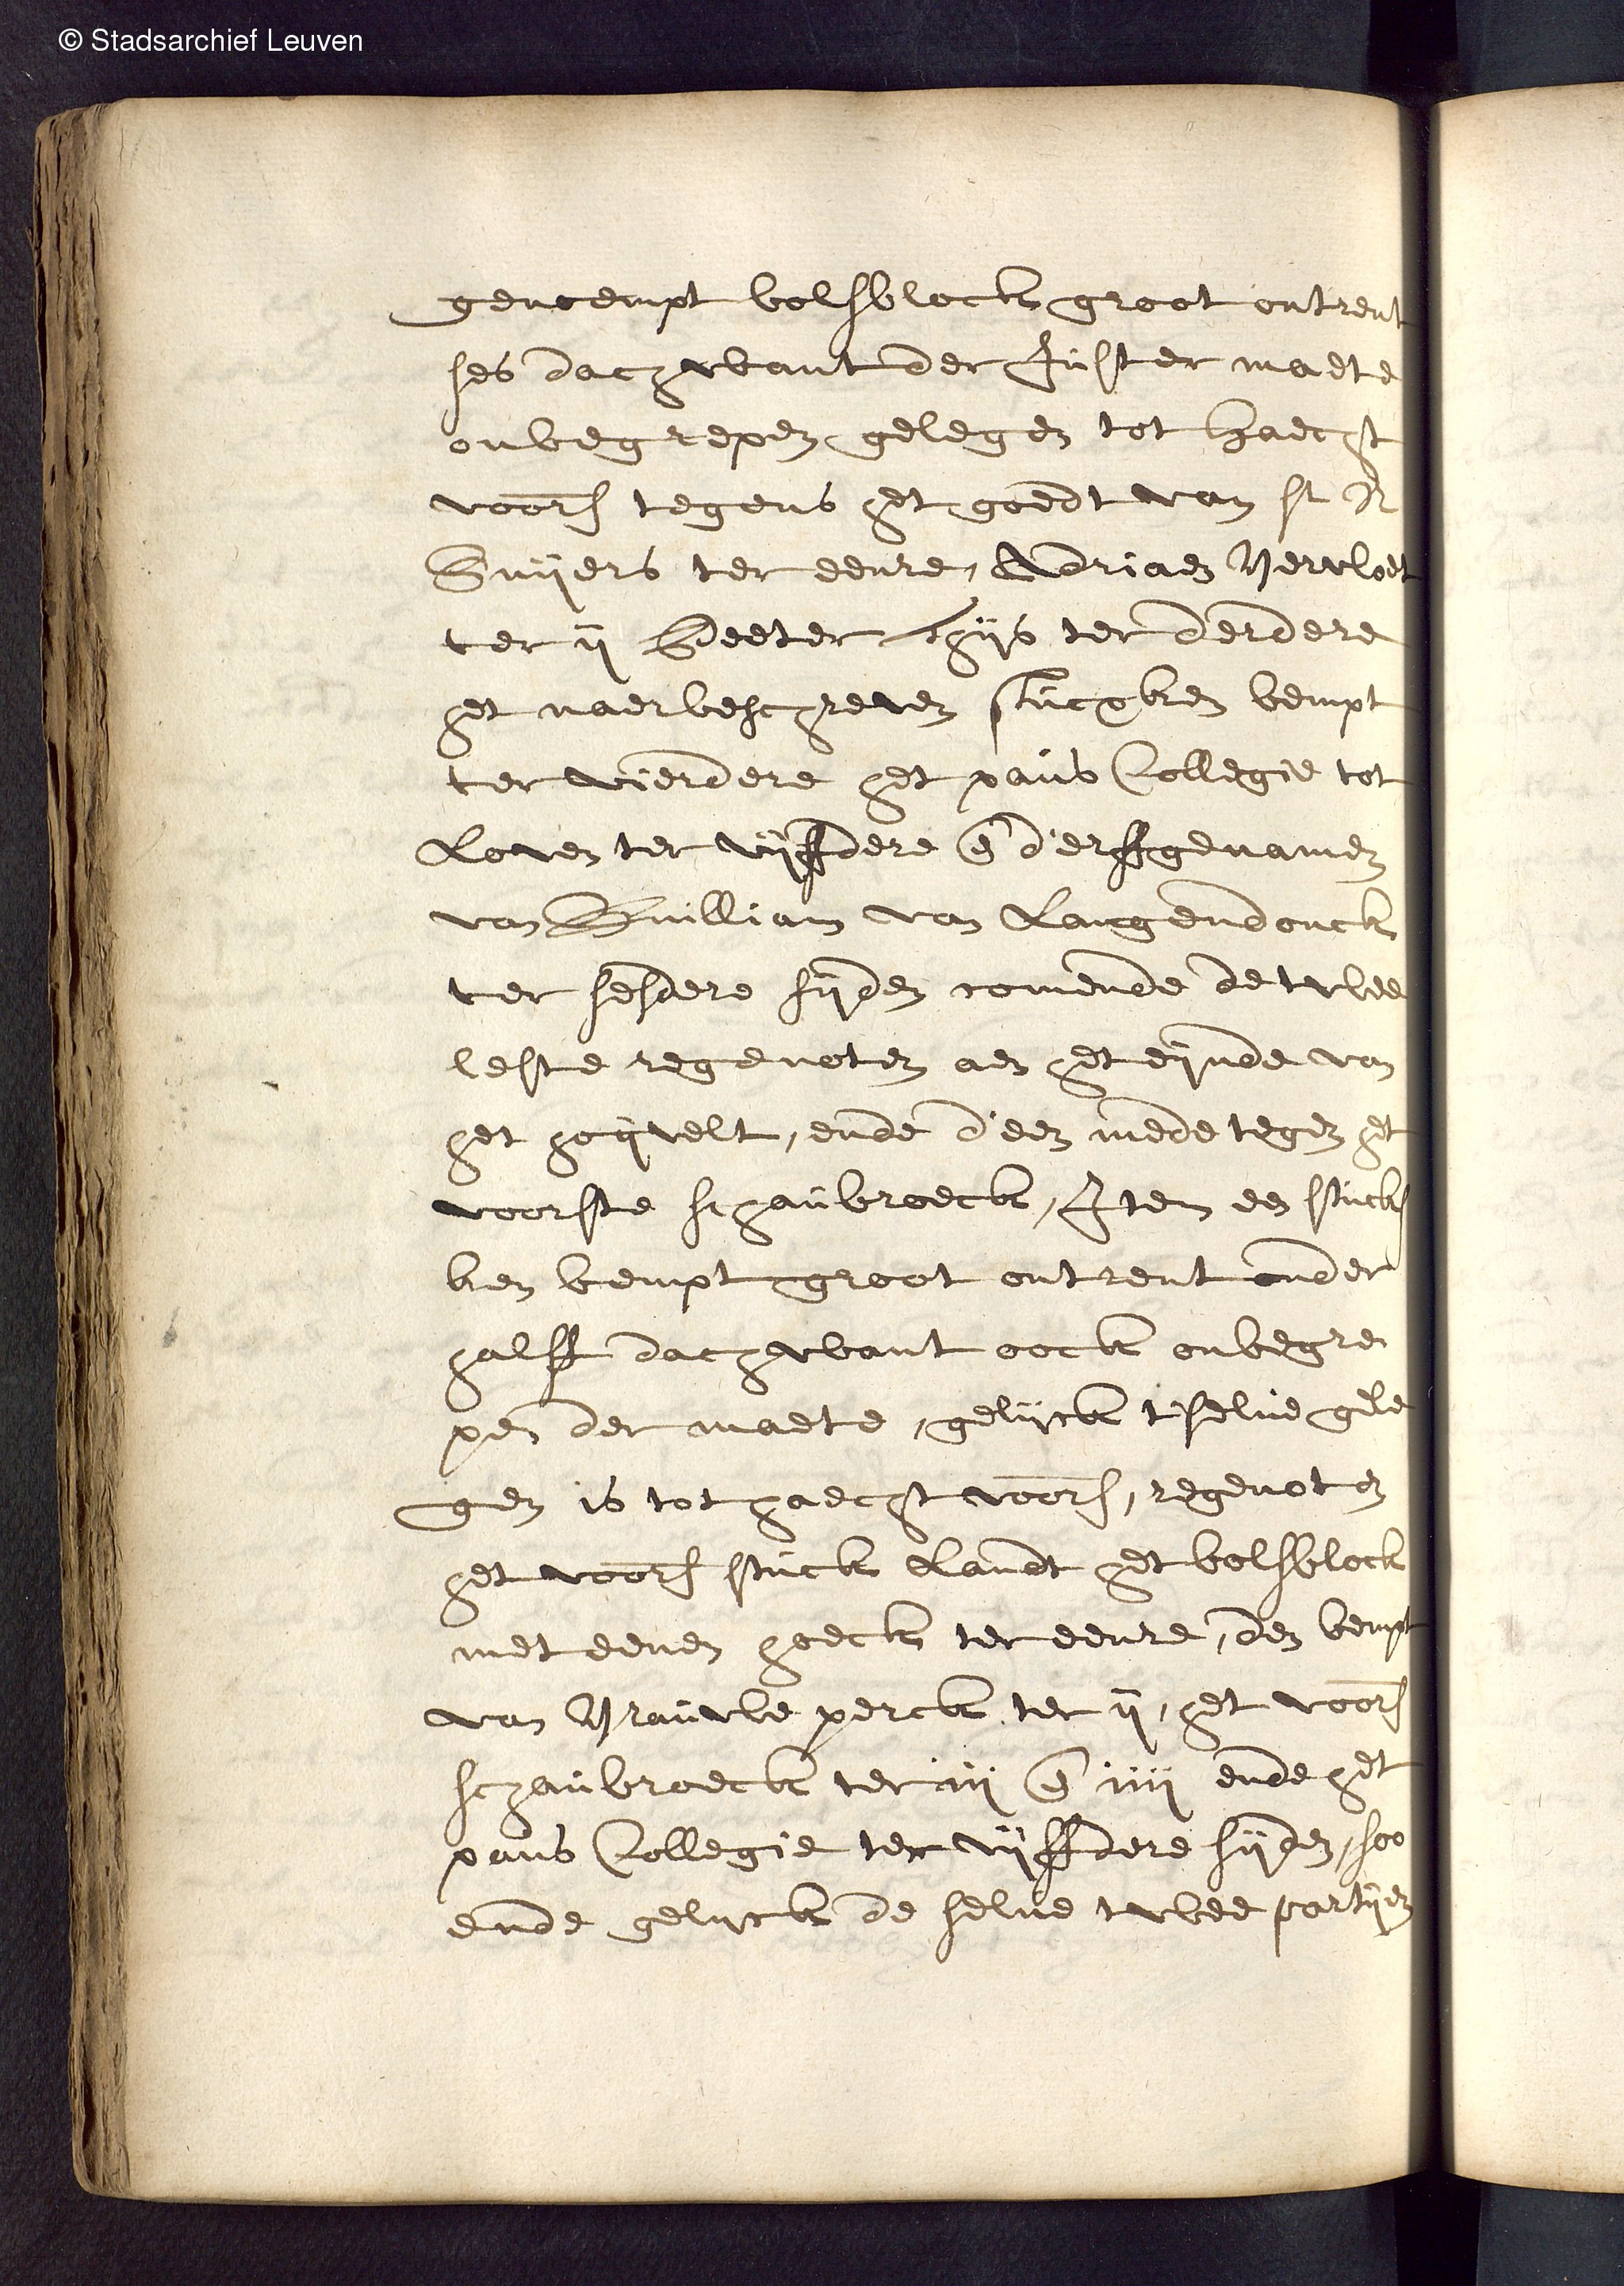 © Stadsarchief Leuven
genoempt bolsblock groot ontrent
ses dachwant der Juster maete
onbegrepen gelegen tot Haecht
voors tegens het goedt van sr
ter eenre, Adriaen Vervloet
ter ij Peeter Thijs ter derdere
het naerbeschreven stucxken bempt
ter vierdere het paus Collegie tot
Loven ter vijffdere en d'erffgenamen
van Guilliam van Langendonck
ter sesdere sijden comende de twee
leste regenoten aen het eijnde van
het hoijvelt, ende d'een mede tegen het
voorste schaubroeck, Item een stuck
ken bempt groot ontrent onder
halff dachwant oock onbegre
pen der maete, gelijck t'selve gele
gen is tot haecht voors, regenoten
het voors stuck Landt het bolsblock
met eenen hoeck ter eenre, den bempt
van Vrauwe perck ter ij, het voors
schaubroeck ter iij en iiij ende het
paus Collegie ter vijffdere sijden, soo
ende gelijck de selve twee partijen